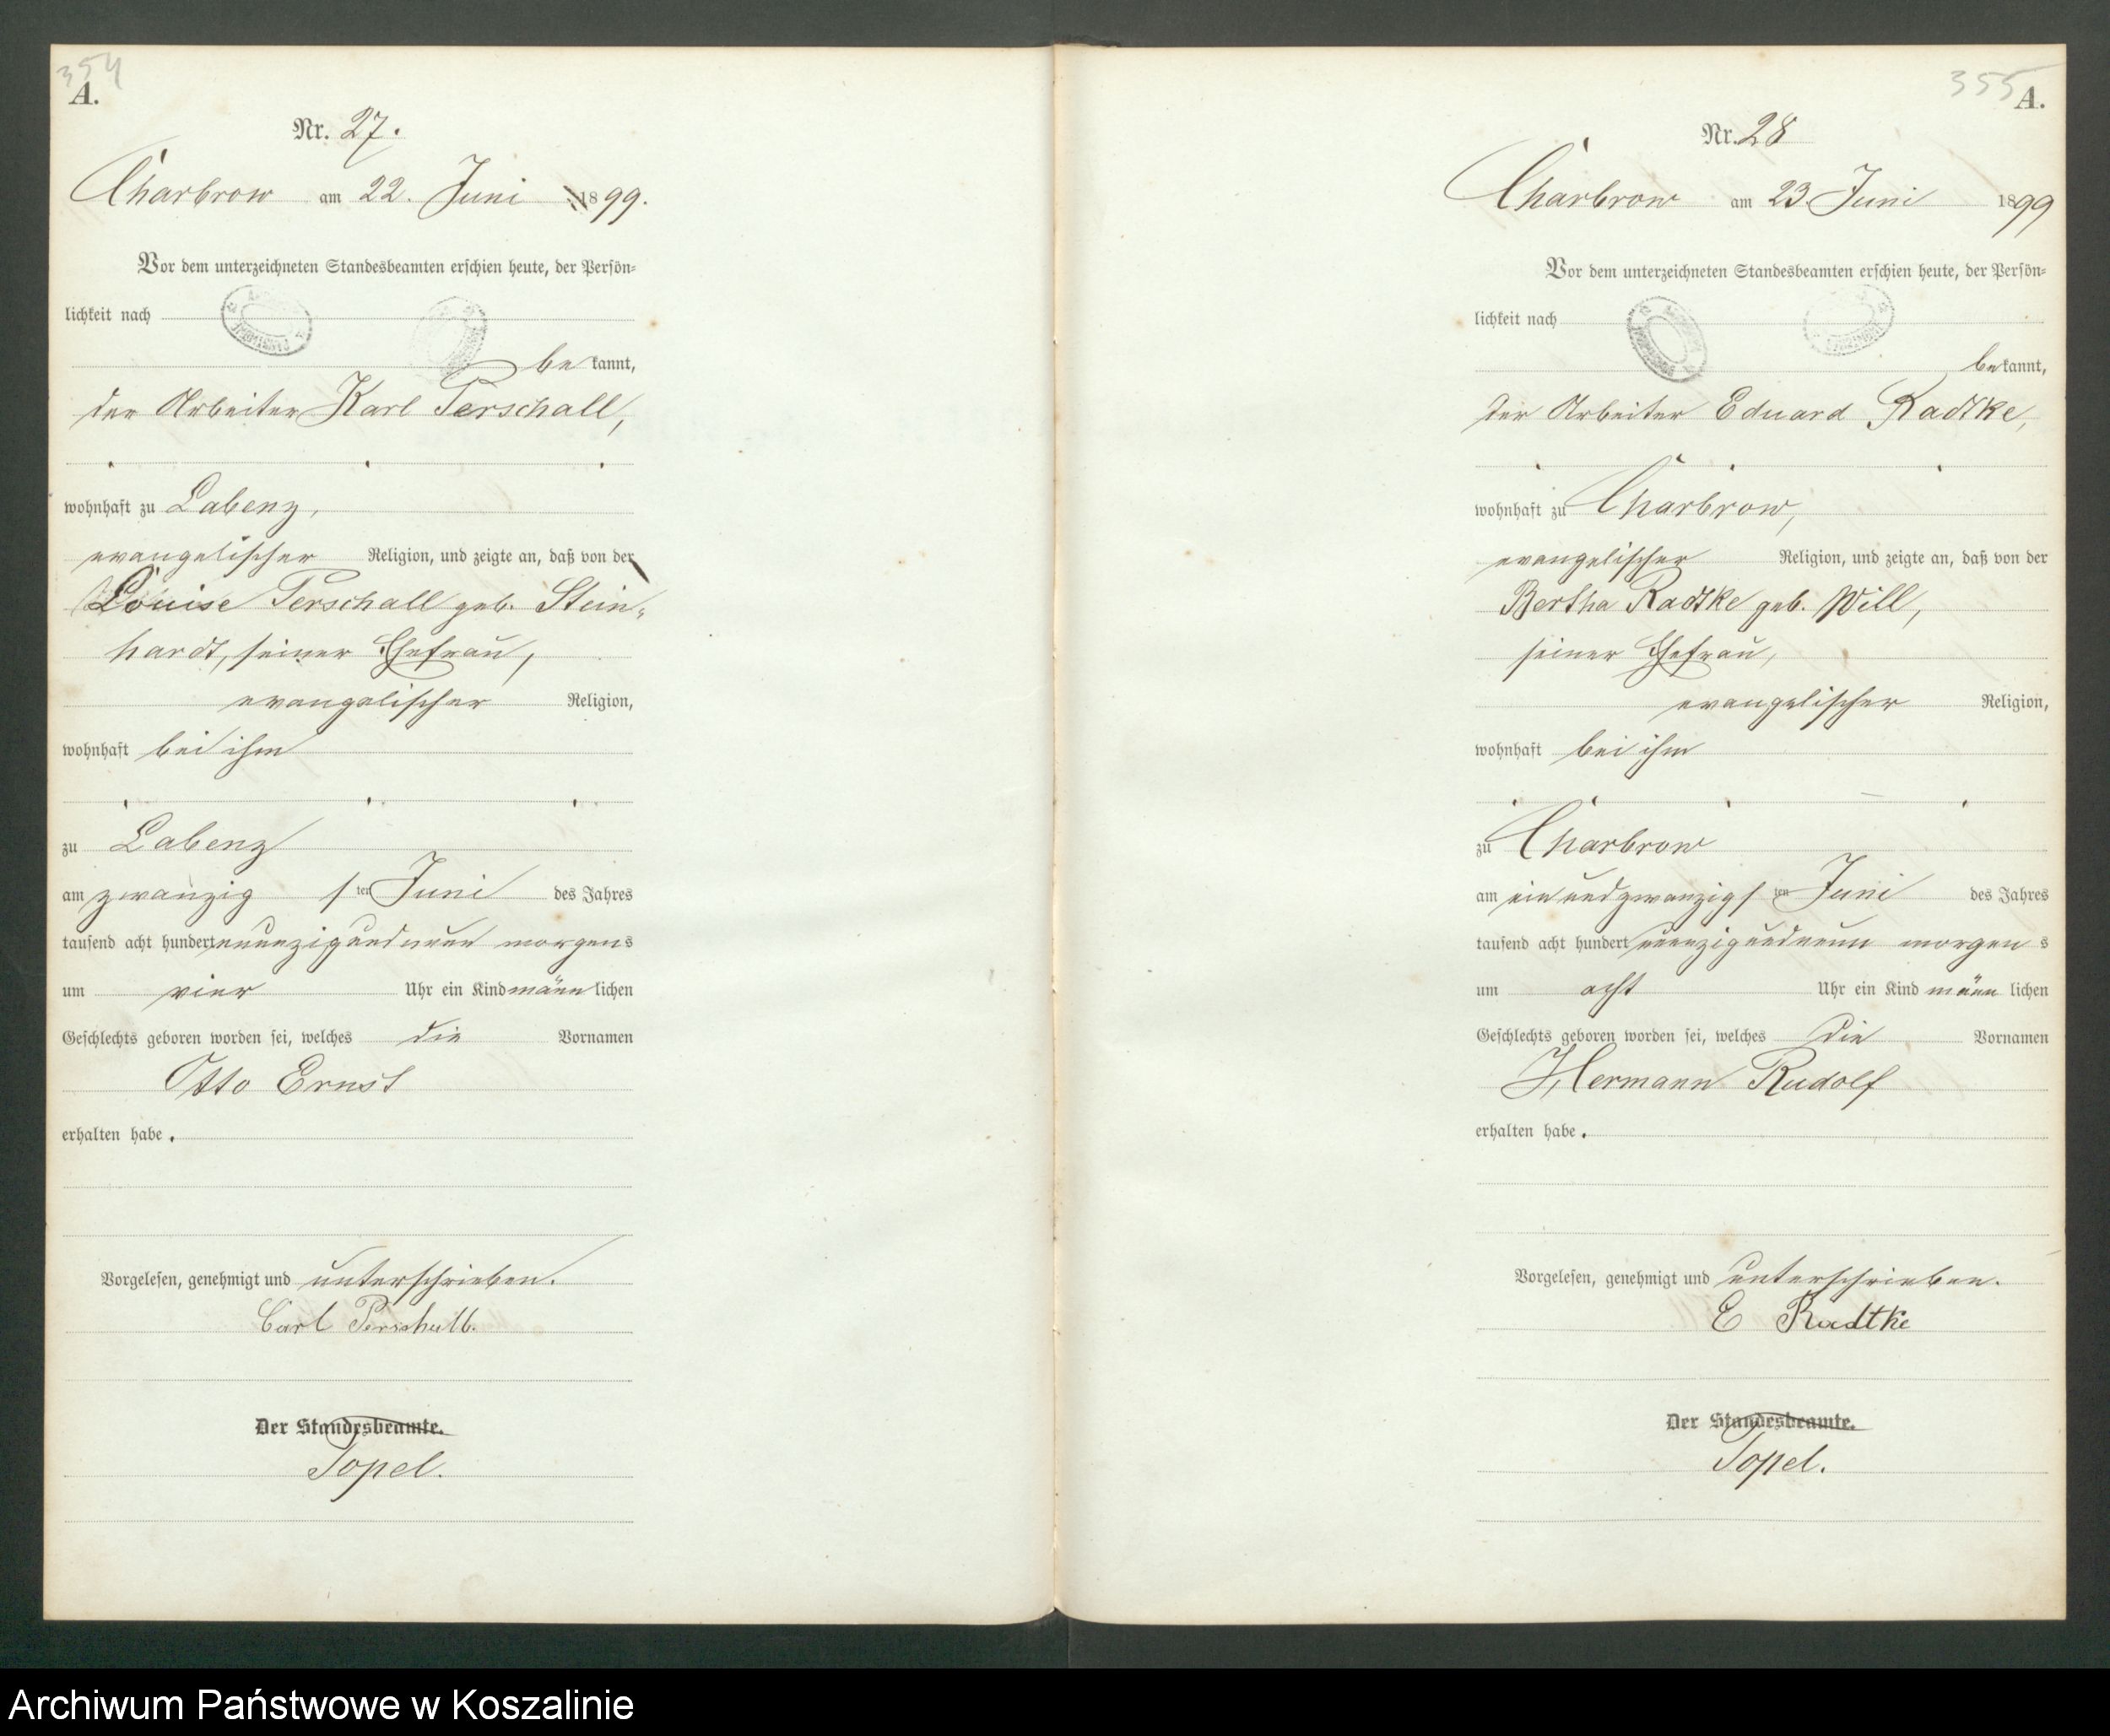 354
A.
Nr. 27.
Charbrow am 22. Juni 1899.
Vor dem unterzeichneten Standesbeamten erschien heute, der Persön-
lichkeit nach
bekannt,
der Arbeiter Karl Perschall,
wohnhaft zu Labenz,
evangelischer Religion, und zeigte an, daß von der
Louise Perschall geb. Stein-
hardt, seiner Ehefrau,
evangelischer Religion,
wohnhaft bei ihm
zu Labenz
am zwanzigsten Juni des Jahres
tausend acht hundert neunzig und neun morgens
um vier Uhr ein Kind männlichen
Geschlechts geboren worden sei, welches die Vornamen
Otto Ernst
erhalten habe.
Vorgelesen, genehmigt und unterschrieben.
Carl Perschall.
Der Standesbeamte.
Topel.
355
A.
Nr. 28
Charbrow am 23. Juni 1899
Vor dem unterzeichneten Standesbeamten erschien heute, der Persön-
lichkeit nach
bekannt,
der Arbeiter Eduard Radtke,
wohnhaft zu Charbrow,
evangelischer Religion, und zeigte an, daß von der
Bertha Radtke geb. Will,
seiner Ehefrau,
evangelischer Religion,
wohnhaft bei ihm
zu Charbrow
am ein und zwanzigsten Juni des Jahres
tausend acht hundert neunzig und neun morgens
um acht Uhr ein Kind männlichen
Geschlechts geboren worden sei, welches die Vornamen
Hermann Rudolf
erhalten habe.
Vorgelesen, genehmigt und unterschrieben.
E Radtke
Der Standesbeamte.
Topel.
Archiwum Państwowe w Koszalinie